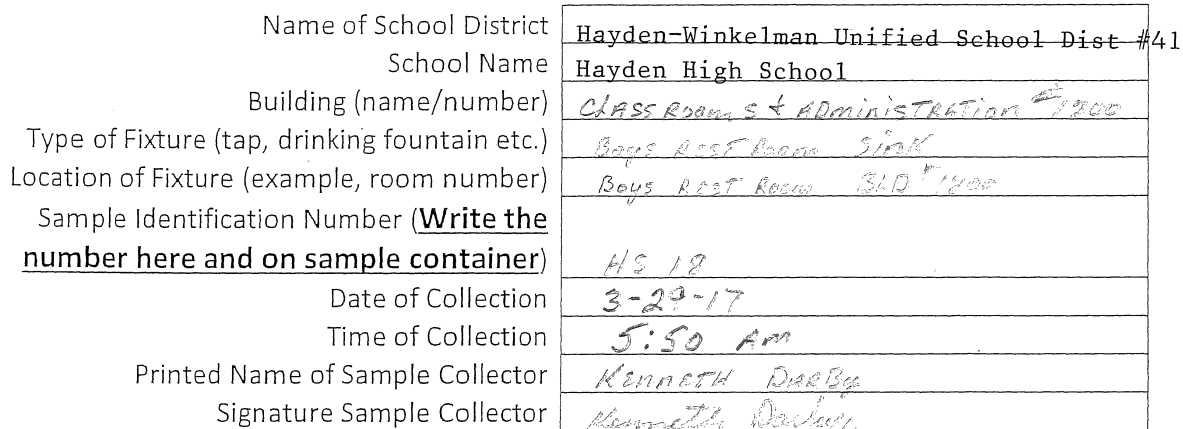 Name of School District Hayden-Winkelman Unified School Dist #41
School Name Hayden High School
Building (name/number) CLASSROOMS & ADMINISTRATION #1200
Type of Fixture (tap, drinking fountain etc.) Boys REST Room SinK
Location of Fixture (example, room number) Boys REST Room BLD #1200
Sample Identification Number (Write the
number here and on sample container) HS 18
Date of Collection 3-29-17
Time of Collection 5:50 Am
Printed Name of Sample Collector KENNETH DARBy
Signature Sample Collector Kenneth Darby